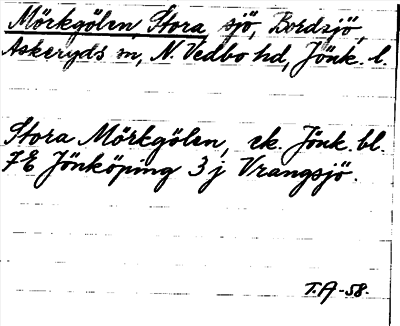 Mörkgölen, Stora, sjö, Bordsjö,
Askeryds sn, N. Vedbo hd, Jönk. l.
Stora Mörkgölen, ek. Jönk. bl.
7E Jönköping 3j Vrangsjö.
T.A -58.